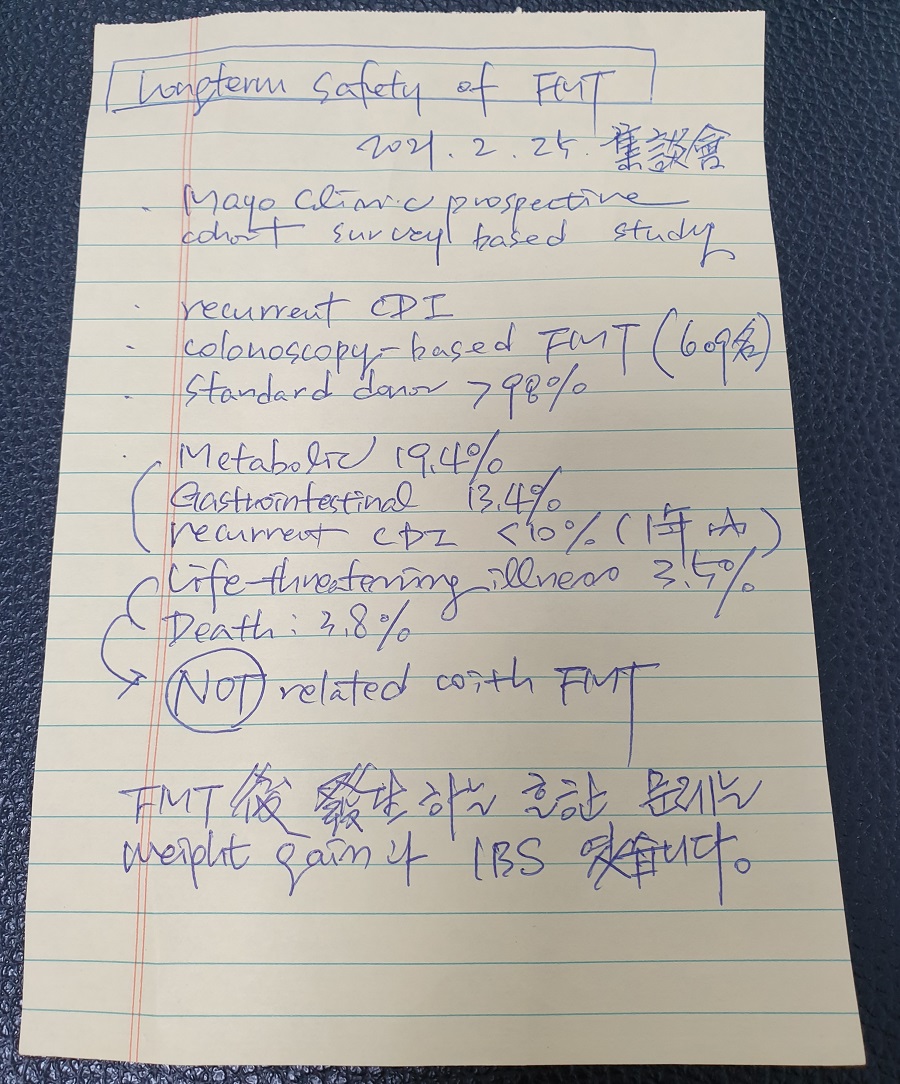 Longterm safety of FMT
2021. 2. 25. 集談會
· Mayo Clinic prospective
cohort survey based study
· recurrent CDI
· colonoscopy-based FMT (609名)
· Standard donor >98%
· Metabolic 19.4%
Gastrointestinal 13.4%
recurrent CDI <10% (1年 內)
Life-threatening illness 3.5%
Death : 3.8%
NOT related with FMT
FMT 後 發生하는 흔한 문제는
weight gain과 IBS 였습니다.